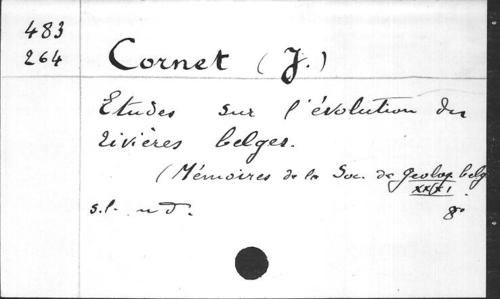 483
264
Cornet (J.)
Etudes sur l'évolution des
rivières belges.
(Mémoires de la Soc. de Geolog. belg
XXXI.
s.l. n d. 8°